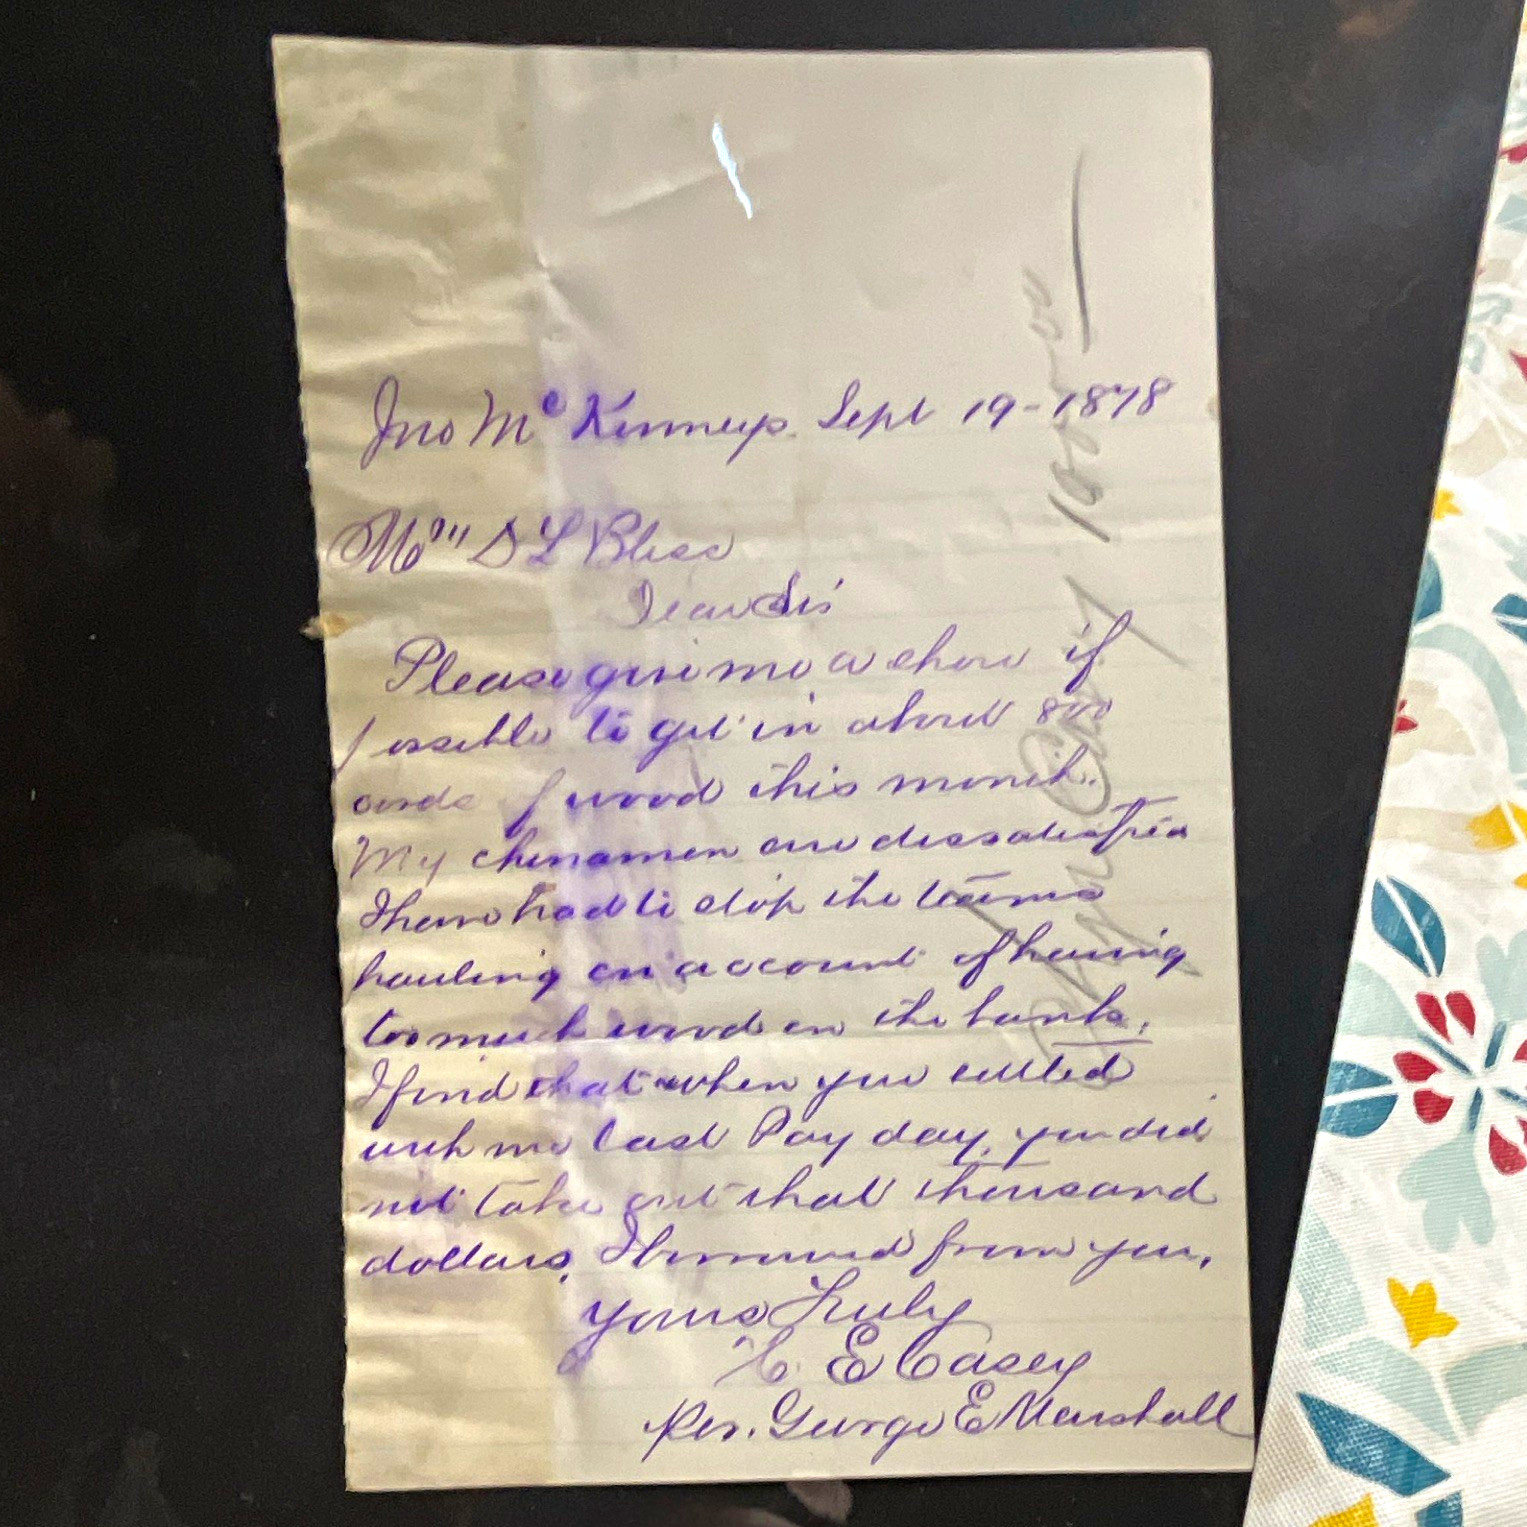 Jno McKinneys. Sept 19 - 1878
D L Bliss
Dear Sir
Please give me a show if
possible to get in about 800
cords of wood this month.
My chinamen are dissatisfied
I have had to stop the teams
hauling on account of having
too much wood on the bank,
I find that when you settled
with me last Pay day, you did
not take out that thousand
dollars, I borrowed from you,
Yours Truly
C. E Casey
Per. George E Marshall